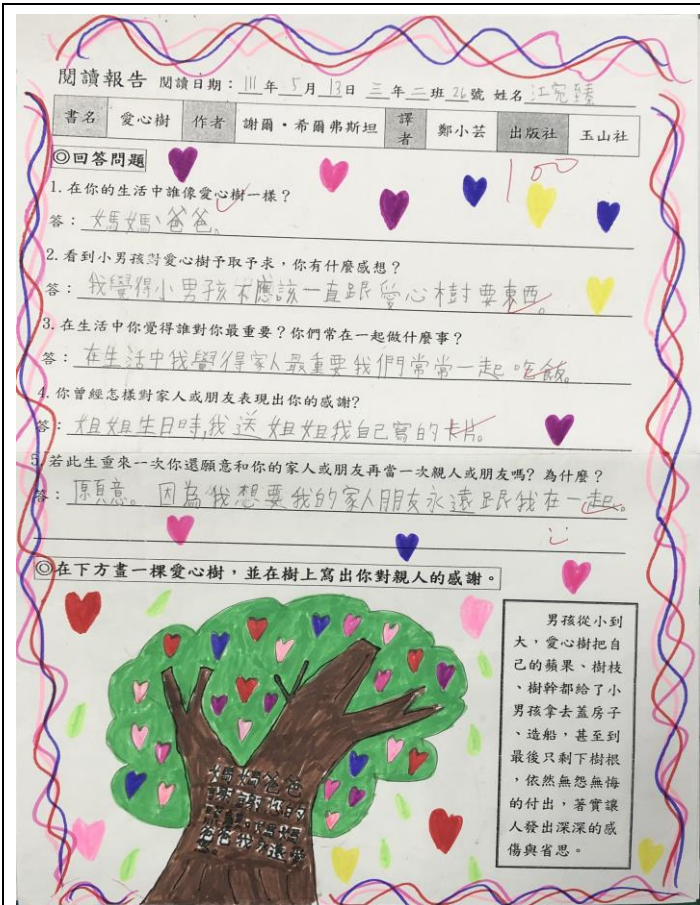 閱讀報告 閱讀日期：111年5月13日 三年二班26號 姓名 江宛臻
書名 愛心樹 作者 謝爾·希爾弗斯坦 譯者 鄭小芸 出版社 玉山社
◎回答問題
100
1.在你的生活中誰像愛心樹一樣？
答：媽媽、爸爸。
2.看到小男孩對愛心樹予取予求，你有什麼感想？
答：我覺得小男孩不應該一直跟愛心樹要東西。
3.在生活中你覺得誰對你最重要？你們常在一起做什麼事？
答：在生活中我覺得家人最重要我們常常一起吃飯。
4.你曾經怎樣對家人或朋友表現出你的感謝？
答：姐姐生日時，我送姐姐我自己寫的卡片。
5.若此生重來一次你還願意和你的家人或朋友再當一次親人或朋友嗎？為什麼？
答：願意。因為我想要我的家人朋友永遠跟我在一起。
◎在下方畫一棵愛心樹，並在樹上寫出你對親人的感謝。
媽媽爸爸
謝謝你的
媽媽
爸爸我
男孩從小到
大，愛心樹把自
己的蘋果、樹枝
、樹幹都給了小
男孩拿去蓋房子
、造船，甚至到
最後只剩下樹根
，依然無怨無悔
的付出，著實讓
人發出深深的感
傷與省思。